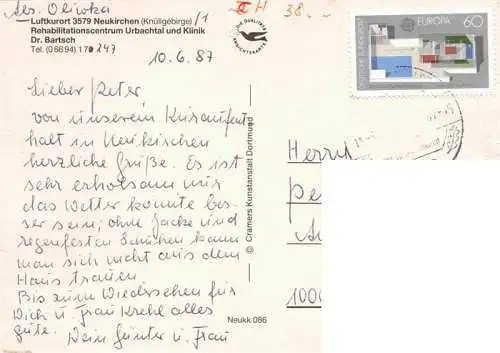 Abs. Olivtka
Luftkurort 3579 Neukirchen (Knüllgebirge) /1
Rehabilitationszentrum Urbachtal und Klinik
Dr. Bartsch
Tel. (0 66 94) 1 70 247
10.6.87
II H 38.-
DIE QUALITÄTS
ANSICHTSKARTE
DEUTSCHE BUNDESPOST
EUROPA
60
Lieber Peter
von unserem Kuraufent
halt in Neukirchen
herzliche Grüße. Es ist
sehr erholsam nur
das Wetter könnte bes-
ser sein; ohne Jacke und
regenfesten Schuhen kann
man sich nicht aus dem
Haus trauen
Bis zum Wiedersehen für
Dich u. Frau Krehl alles
gute. Dein Günter u. Frau
© Cramers Kunstanstalt Dortmund
Neukk 086
Herrn
Pe
1000